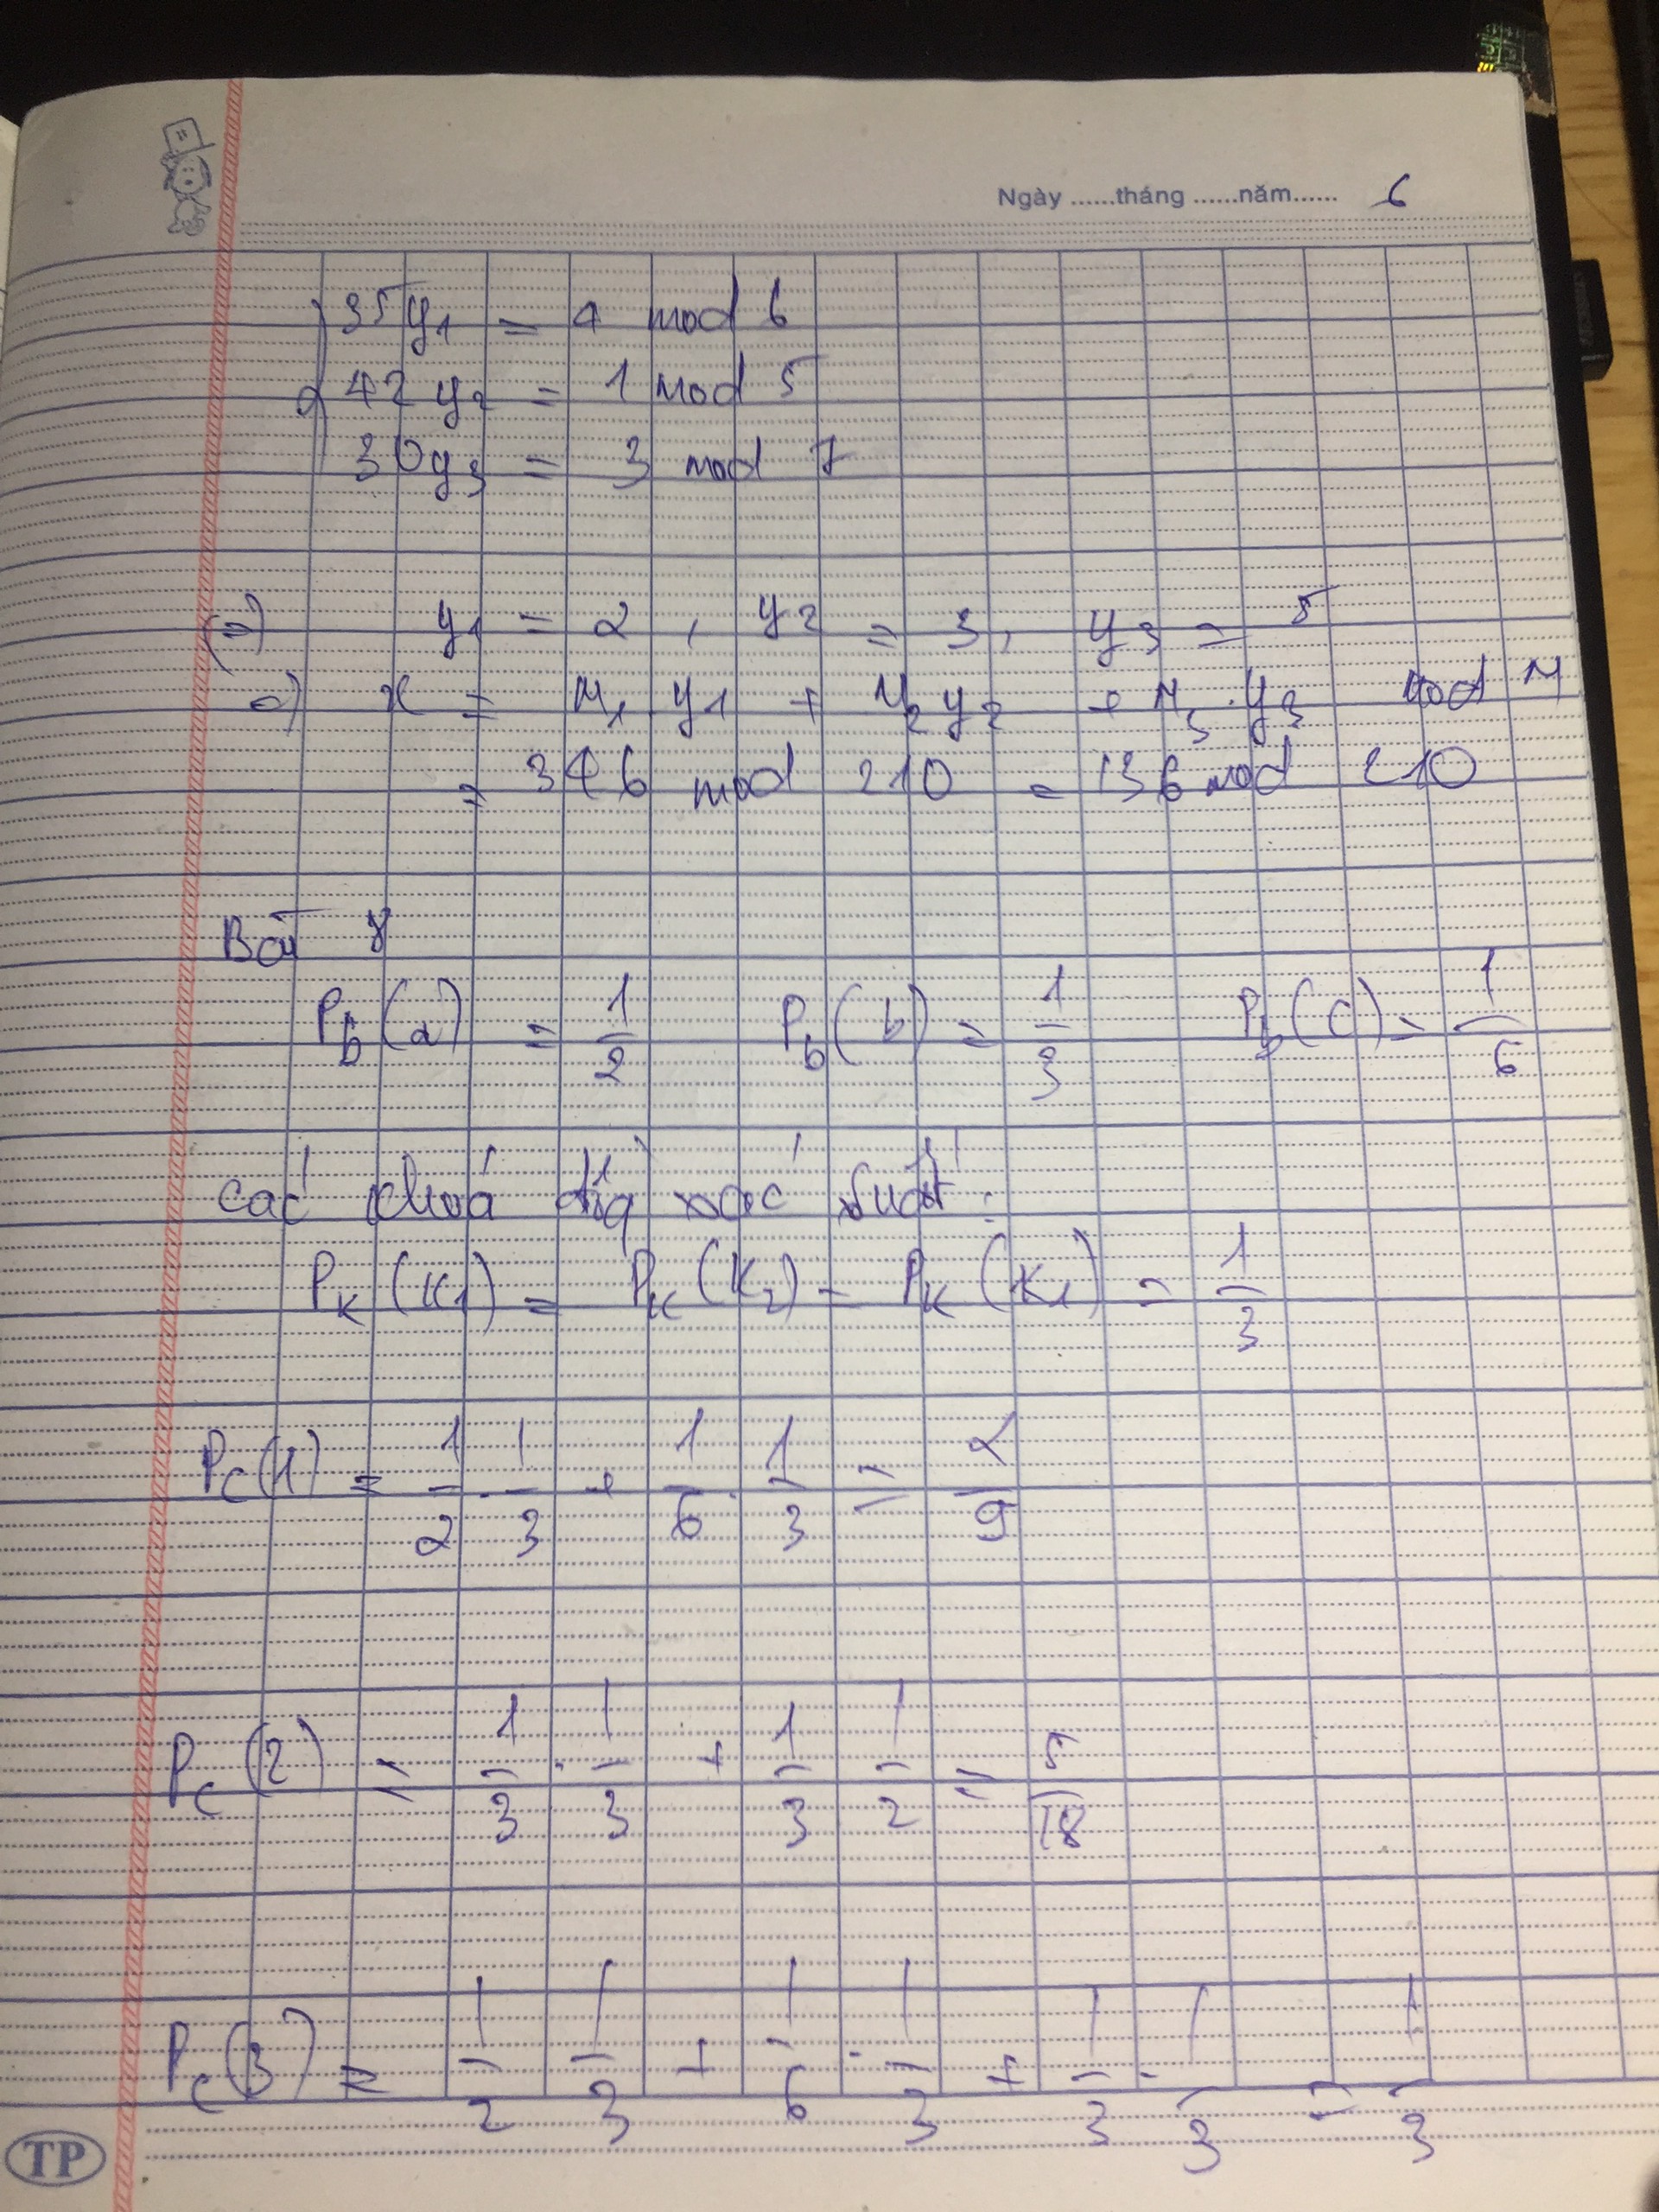 Ngày ......tháng ......năm...... 6
35y₁ = 4 mod 6
42 y₂ = 1 mod 5
30y₃ = 3 mod 7
(=) y₁ = 2 , y₂ = 3, y₃ = 5
=) x = M₁ y₁ + M₂ y₂ + M₃ . y₃ mod M
= 346 mod 210 = 136 mod 210
Bài 8
P_b(a) = 1/2 P_b(b) = 1/3 P_b(c) = 1/6
các khoá xác suất :
P_K (K₁) = P_K (K₂) = P_K (K₁) = 1/3
P_C(1) = 1/2 . 1/3 + 1/6 . 1/3 = 2/9
P_C(2) = 1/3 . 1/3 + 1/3 1/2 = 5/18
P_C(3) = 1/2 1/3 + 1/6 . 1/3 + 1/3 . 1/3 = 1/3
TP